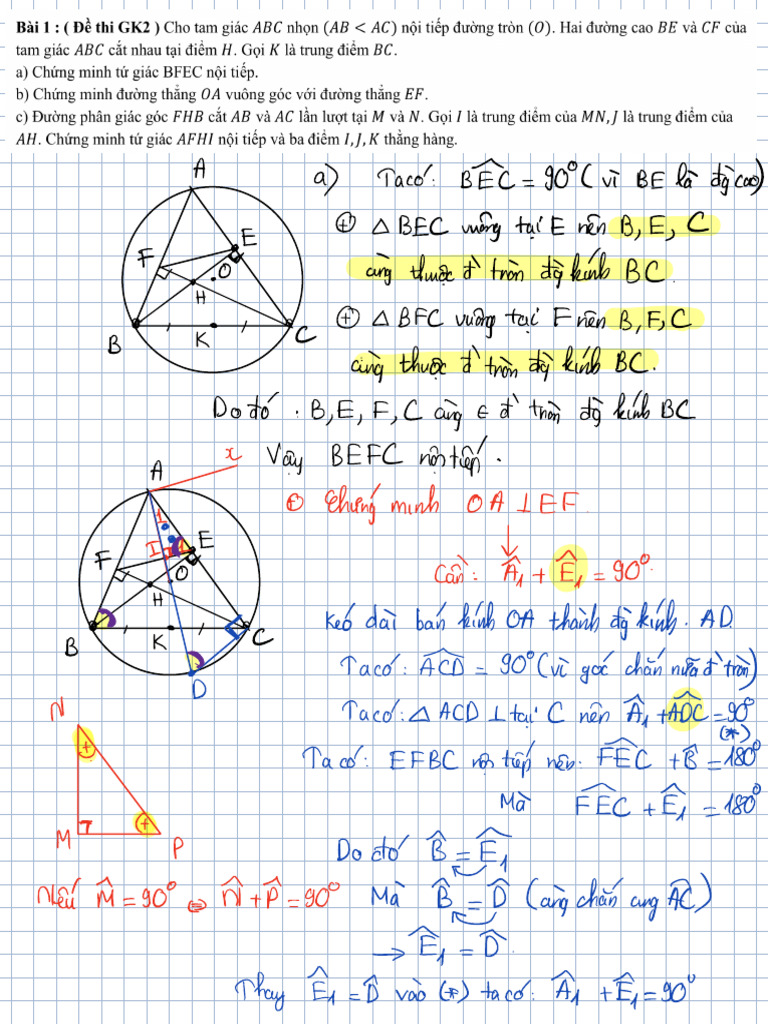 Bài 1 : ( Đề thi GK2 ) Cho tam giác ABC nhọn (AB < AC) nội tiếp đường tròn (O). Hai đường cao BE và CF của
tam giác ABC cắt nhau tại điểm H. Gọi K là trung điểm BC.
a) Chứng minh tứ giác BFEC nội tiếp.
b) Chứng minh đường thẳng OA vuông góc với đường thẳng EF.
c) Đường phân giác góc FHB cắt AB và AC lần lượt tại M và N. Gọi I là trung điểm của MN, J là trung điểm của
AH. Chứng minh tứ giác AFHI nội tiếp và ba điểm I, J, K thẳng hàng.
A
E
F
O
H
B
K
C
a) Ta có: BEC = 90° (vì BE là đg cao)
⊕ △ BEC vuông tại E nên B, E, C
cùng thuộc đ' tròn đg kính BC.
⊕ △ BFC vuông tại F nên B, F, C
cùng thuộc đ' tròn đg kính BC.
Do đó . B, E, F, C cùng ∈ đ' tròn đg kính BC
Vậy BEFC nội tiếp .
x
A
1
I
1
E
F
O
H
B
K
C
D
⊕ Chứng minh OA ⊥ EF
Cần: Â₁ + Ê₁ = 90°
Kéo dài bán kính OA thành đg kính . AD.
Ta có: ACD = 90° (vì góc chắn nửa đ' tròn)
Ta có: △ ACD ⊥ tại C nên Â₁ + ADC = 90°
(*)
Ta có: EFBC nội tiếp nên: FEC + B̂ = 180°
Mà FEC + Ê₁ = 180°
Do đó B̂ = Ê₁
Mà B̂ = D̂ (cùng chắn cung AC)
→ Ê₁ = D̂
Thay Ê₁ = D̂ vào (*) ta có: Â₁ + Ê₁ = 90°
N
+
M
+
P
Nếu M̂ = 90° ⇔ N̂ + P̂ = 90°